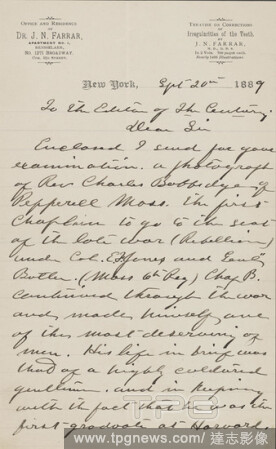 OFFICE AND RESIDENCE
OF
DR. J. N. FARRAR,
TREATISE ON CORRECTION
OF
Irregularities of the Teeth.
BY
J. N. FARRAR,
New York, Sept 20th 1889
To the Editor of The Century.
Dear Sir
Enclosed I send for your
examination a photograph
of Rev Charles Babbidge of
Pepperell Mass. the first
Chaplain to go to the seat
of the late war (Rebellion)
under Col. E.F. Jones and Gen'l
Butler. (Mass 6th Reg) Chap B.
continued through the war
and made himself one
of the most deserving of
men. His life in brief was
that of a highly cultured
gentleman. and in keeping
with the fact that he was the
first graduate at Harvard
TPG
www.tpgnews.com/ 達志影像